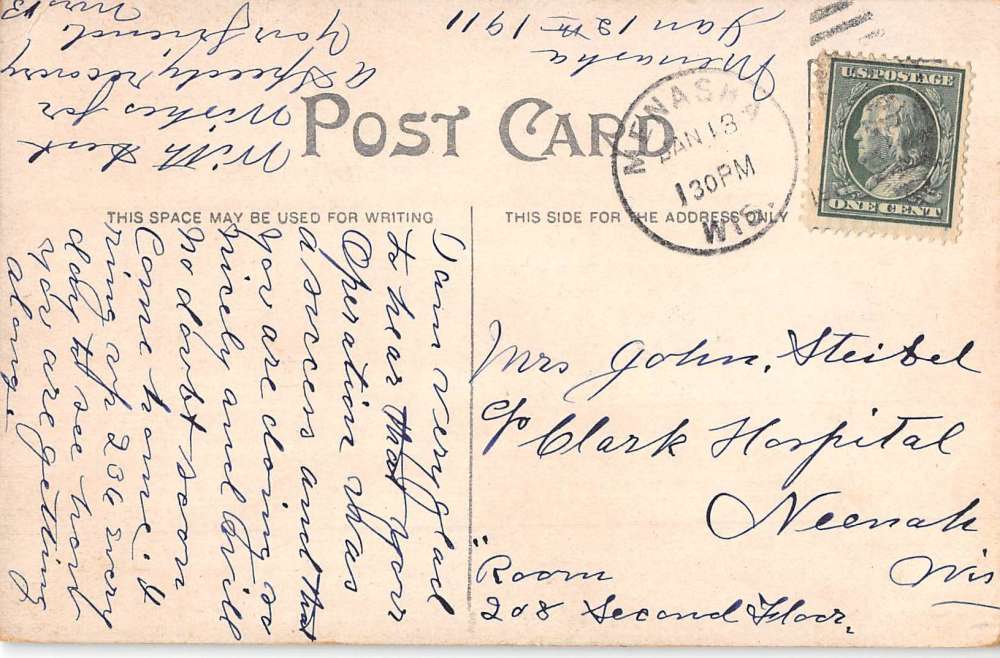 POST CARD
THIS SPACE MAY BE USED FOR WRITING
THIS SIDE FOR THE ADDRESS ONLY
MENASHA
JAN 13
130PM
WIS.
U.S. POSTAGE
ONE CENT
Menasha
Jan 12th 1911
I am very glad
to hear that your
Operation was
a success and that
you are doing so
nicely and will
no doubt soon
Come home. I
ring up 236 every
day to see how
you are getting
along.
With best
Wishes for
a Speedy recovery
Your friend
Mrs B
Mrs John, Steibel
c/o Clark Hospital
Neenah
Wis
"Room
208 Second Floor,